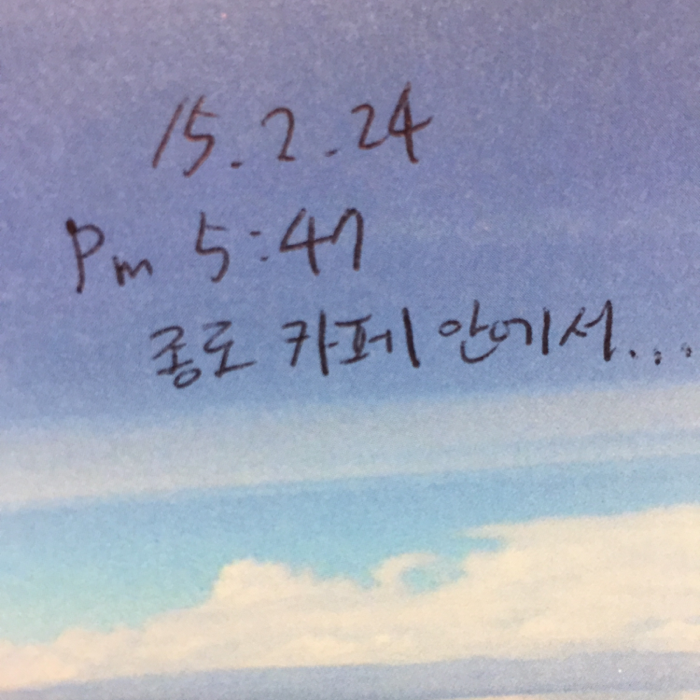 15.2.24
Pm 5:47
종로 카페 안에서...